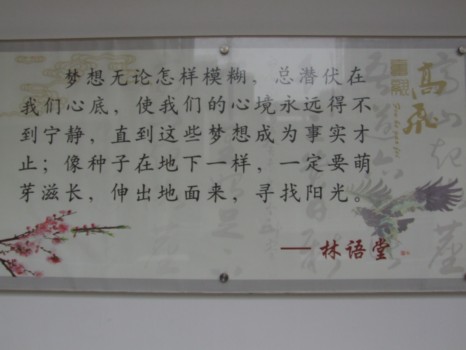 梦想无论怎样模糊，总潜伏在
我们心底，使我们的心境永远得不
到宁静，直到这些梦想成为事实才
止；像种子在地下一样，一定要萌
芽滋长，伸出地面来，寻找阳光。
——林语堂
高飞